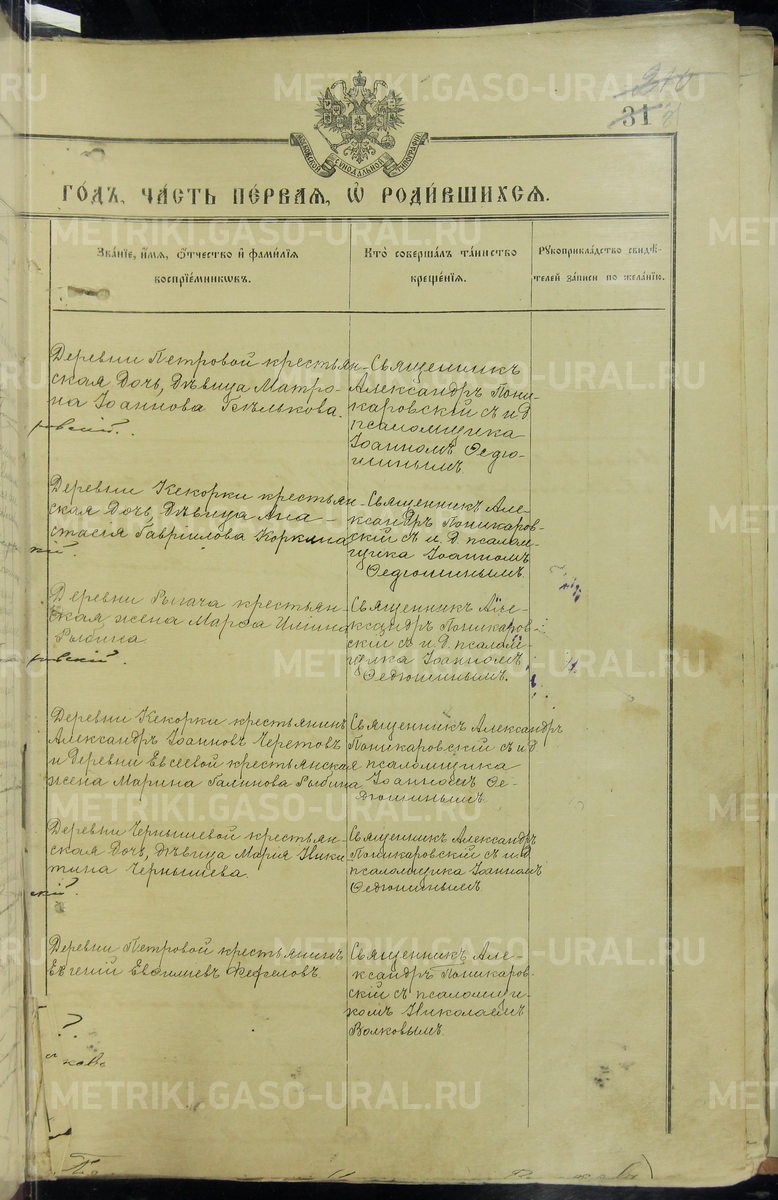 210
31
МОСКОВСКОЙ СѴНОДАЛЬНОЙ ТИПОГРАФІИ
ГО́ДЪ, ЧА́СТЬ ПЕ́РВАЯ, Ѡ҆ РОДИ́ВШИХСЯ.
Зва́нїе, и҆́мя, ѻ҆́тчество и҆ фами́лїя
воспрїе́мникѡвъ.
Кто̀ соверша́лъ та́инство
креще́нїя.
Рꙋкоприкла́дство свидѣ́-
телей за́писи по жела́нїю.
Деревни Петровой крестьян-
ская дочь, дѣвица Матро-
на Іоаннова Бѣлькова.
ровскій.
Священникъ
Александръ Пони-
каровскій с и.д.
псаломщика
Іоанномъ Ѳедю-
шинымъ
Деревни Кекорки крестьян-
ская дочь, дѣвица Ана-
стасія Гавриилова Коркина
кій.
Священникъ Але-
ксандръ Поникаров-
скій съ и.д. псалом-
щика Іоанномъ
Ѳедюшинымъ.
Деревни Рычача крестьян-
ская жена Марѳа Иліина
Рыбина.
ровскій.
Священникъ Але-
ксандръ Поникаров-
скій съ и.д. псалом-
щика Іоанномъ
Ѳедюшинымъ.
Деревни Кекорки крестьянинъ
Александръ Іоанновъ Черетовъ
и деревни Евсеевой крестьянская
жена Марина Галинова Рыбина
Священникъ Александръ
Поникаровскій съ и.д
псаломщика
Іоанномъ Ѳе-
дюшинымъ
Деревни Чернышевой крестьян-
ская дочь, дѣвица Марія Ники-
тина Чернышева.
скій.
Священникъ Александръ
Поникаровскій съ и.д.
псаломщика Іоанномъ
Ѳедюшинымъ
Деревни Петровой крестьянинъ
Евгеній Евѳиміевъ Фефеловъ.
Священникъ Але-
ксандръ Поникаров-
скій съ псаломщи-
комъ Николаемъ
Волковымъ.
?
ковъ
METRIKI.GASO-URAL.RU